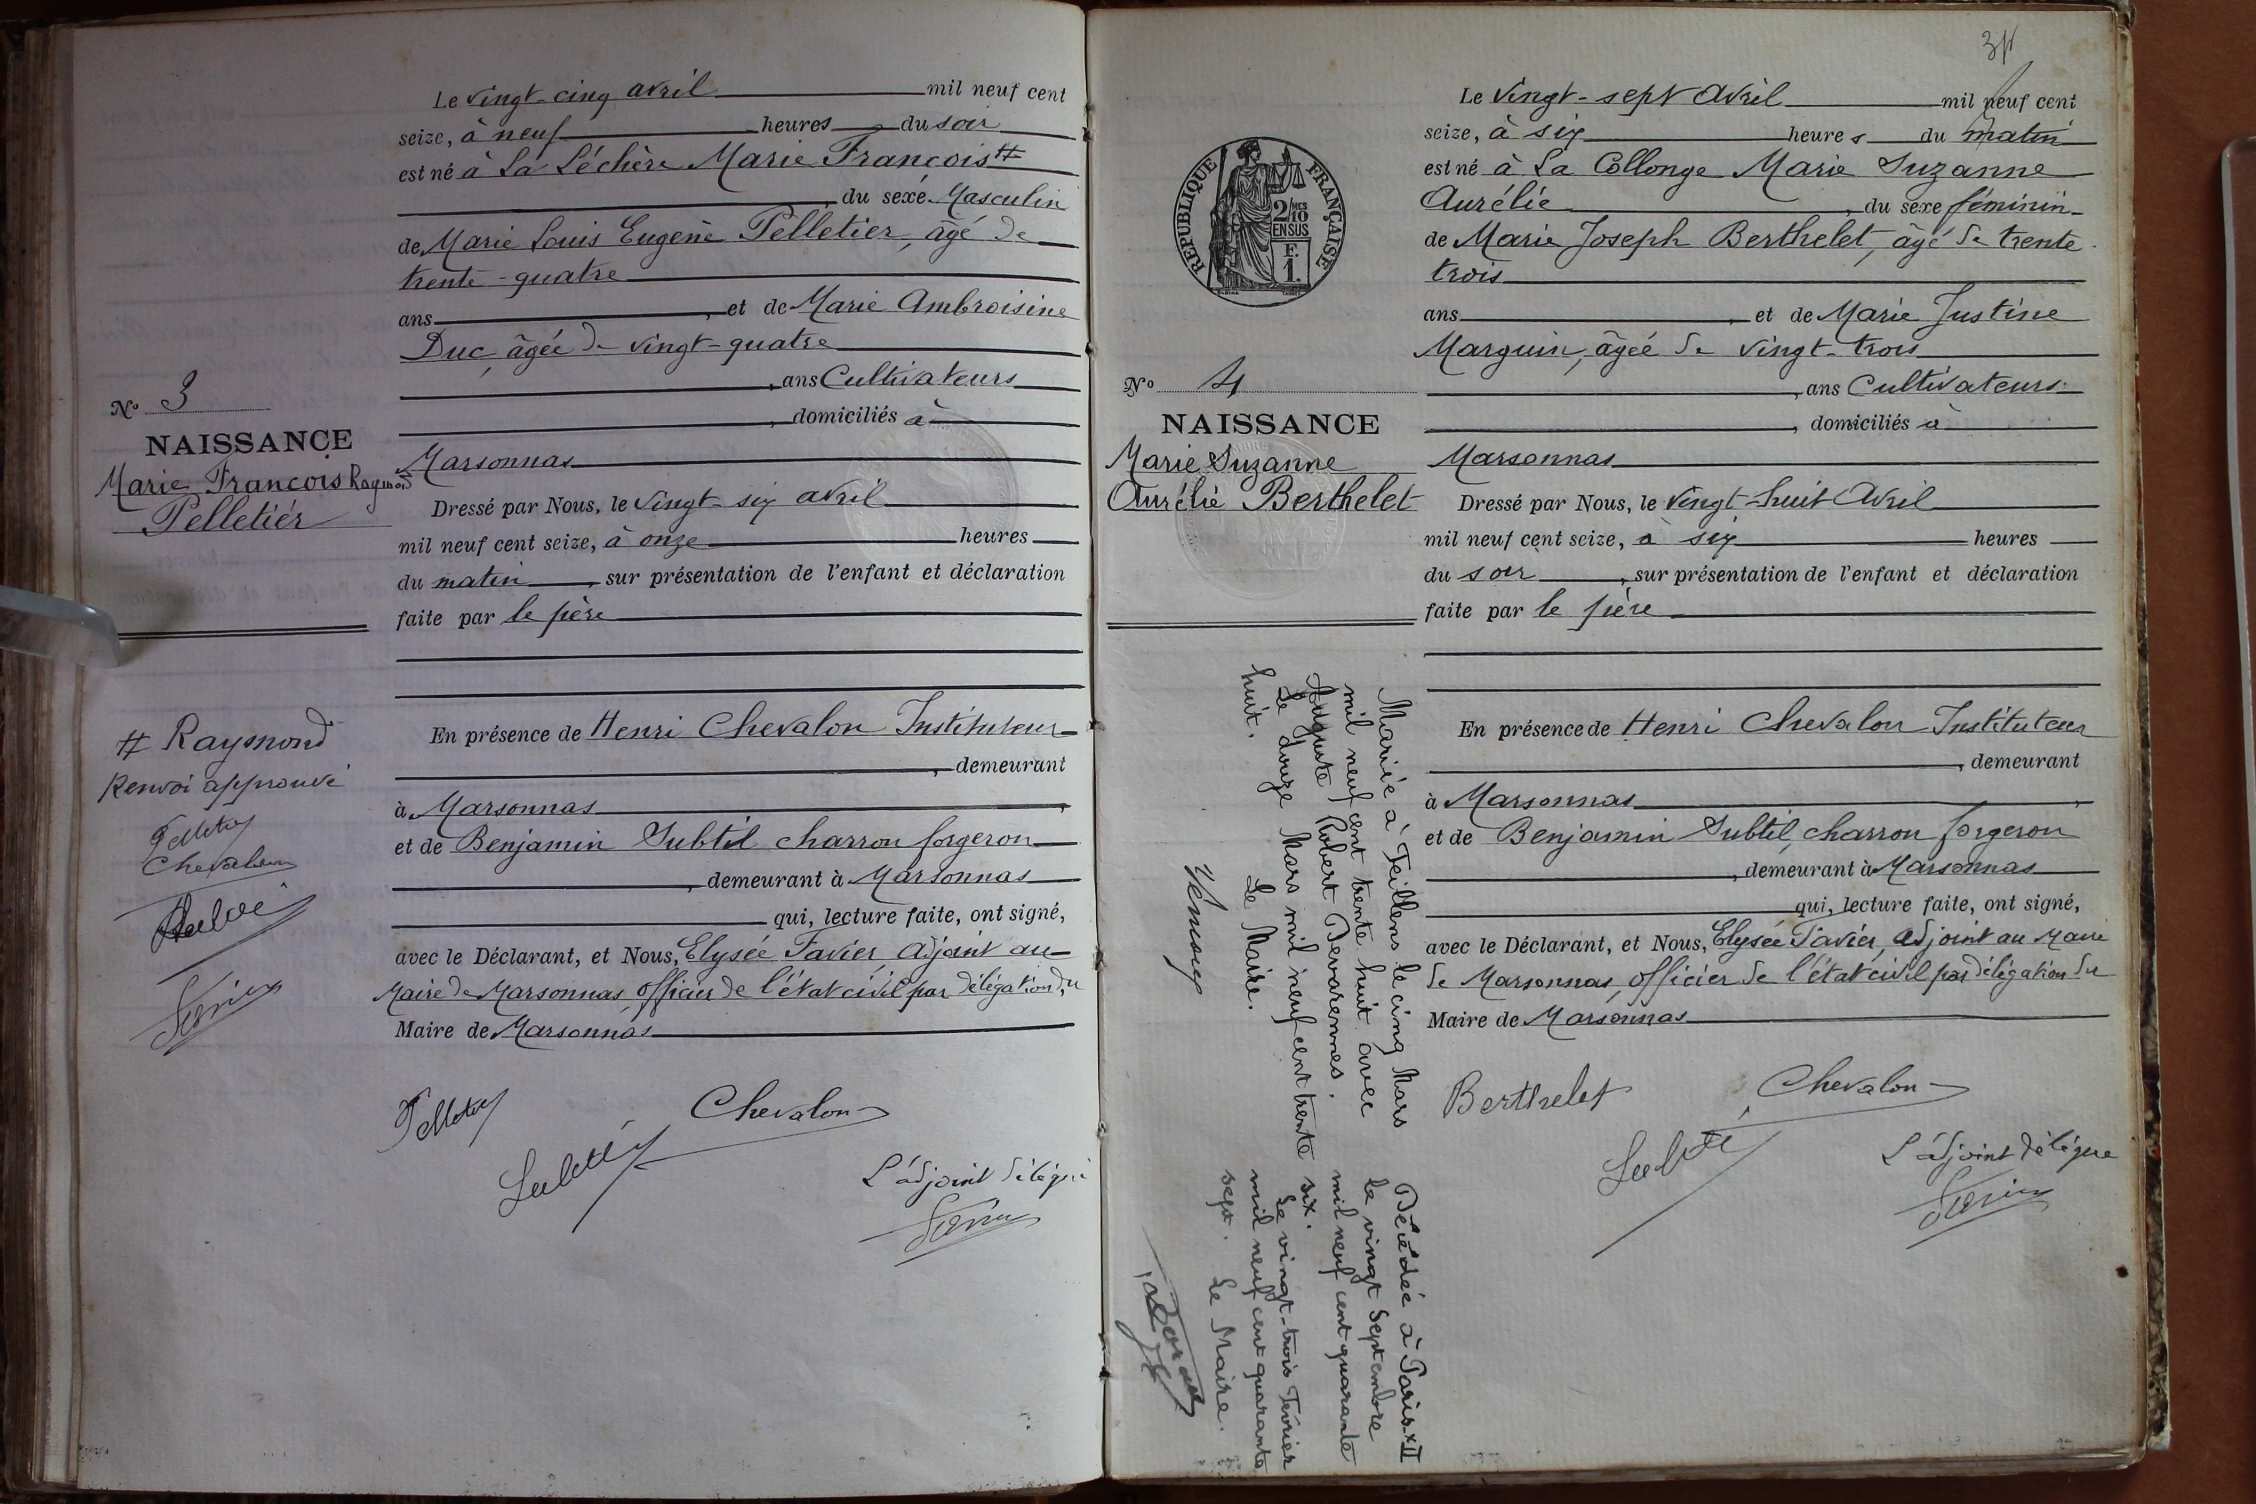 Le vingt-cinq avril mil neuf cent
seize, à neuf heures du soir
est né à La Léchère Marie François #
, du sexe Masculin
de Marie Louis Eugène Pelletier, âgé de
trente-quatre
ans, et de Marie Ambroisine
Duc, âgée de vingt-quatre
, ans Cultivateurs
, domiciliés à
Marsonnas
Dressé par Nous, le vingt-six avril
mil neuf cent seize, à onze heures
du matin, sur présentation de l'enfant et déclaration
faite par le père
En présence de Henri Chevalon Instituteur
, demeurant
à Marsonnas,
et de Benjamin Subtil charron forgeron
, demeurant à Marsonnas
qui, lecture faite, ont signé,
avec le Déclarant, et Nous, Elysée Favier Adjoint au
Maire de Marsonnas officier de l'état civil par délégation du
Maire de Marsonnas
Chevalon
L'adjoint délégué
No 3
NAISSANCE
Marie François Raymond
Pelletier
# Raymond
Renvoi approuvé
Chevalon
Le vingt-sept Avril mil neuf cent
seize, à six heures du matin
est né à La Collonge Marie Suzanne
Aurélie, du sexe féminin
de Marie Joseph Berthelet, âgé de trente
trois
ans, et de Marie Justine
Marguin, âgée de vingt-trois
, ans Cultivateurs
, domiciliés à
Marsonnas
Dressé par Nous, le vingt-huit Avril
mil neuf cent seize, à six heures
du soir, sur présentation de l'enfant et déclaration
faite par le père
En présence de Henri Chevalon Instituteur
, demeurant
à Marsonnas,
et de Benjamin Subtil, charron forgeron
, demeurant à Marsonnas
qui, lecture faite, ont signé,
avec le Déclarant, et Nous, Elysée Favier, Adjoint au Maire
de Marsonnas, officier de l'état civil par délégation du
Maire de Marsonnas
Berthelet
Chevalon
L'adjoint délégué
RÉPUBLIQUE FRANÇAISE
2/10MES
EN SUS
F.
1.
No 4
NAISSANCE
Marie Suzanne
Aurélie Berthelet
Mariée à Teillens le cinq Mars
mil neuf cent trente huit avec
Auguste Robert Devarennes.
Le douze Mars mil neuf cent trente
huit. Le Maire.
Décédée à Paris XII
le vingt Septembre
mil neuf cent quarante
six.
Le vingt-trois Février
mil neuf cent quarante
sept. Le Maire.